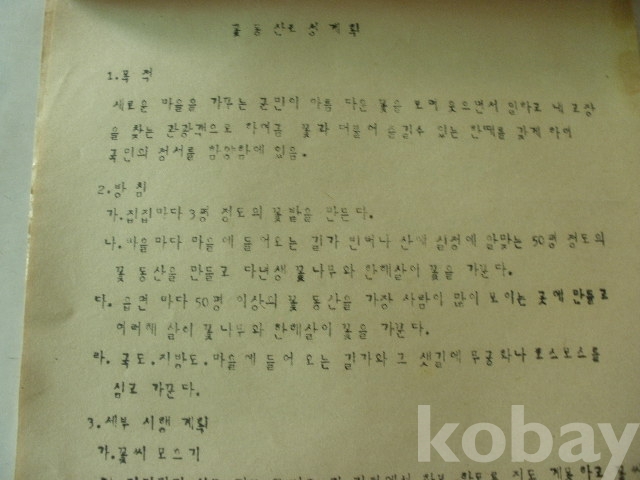 꽃 동 산 조 성 계 획
1. 목 적
새로운 마을을 가꾸는 국민이 아름 다운 꽃을 보며 웃으면서 일하고 내 고장
을 찾는 관광객으로 하여금 꽃과 더불어 즐길수 있는 한때를 갖게 하여
국민의 정서를 함양함에 있음.
2. 방 침
가. 집집마다 3평 정도의 꽃밭을 만든다.
나. 마을마다 마을에 들어오는 길가 빈터나 산에 실정에 알맞는 50평 정도의
꽃 동산을 만들고 다년생 꽃나무와 한해살이 꽃을 가꾼다.
다. 읍면 마다 50평 이상의 꽃 동산을 가장 사람이 많이 보이는 곳에 만들고
여러해 살이 꽃나무와 한해살이 꽃을 가꾼다.
라. 국도. 지방도. 마을에 들어 오는 길가와 그 샛길에 무궁화나 코스모스를
심고 가꾼다.
3. 세부 시행 계획
가. 꽃씨 모으기
kobay